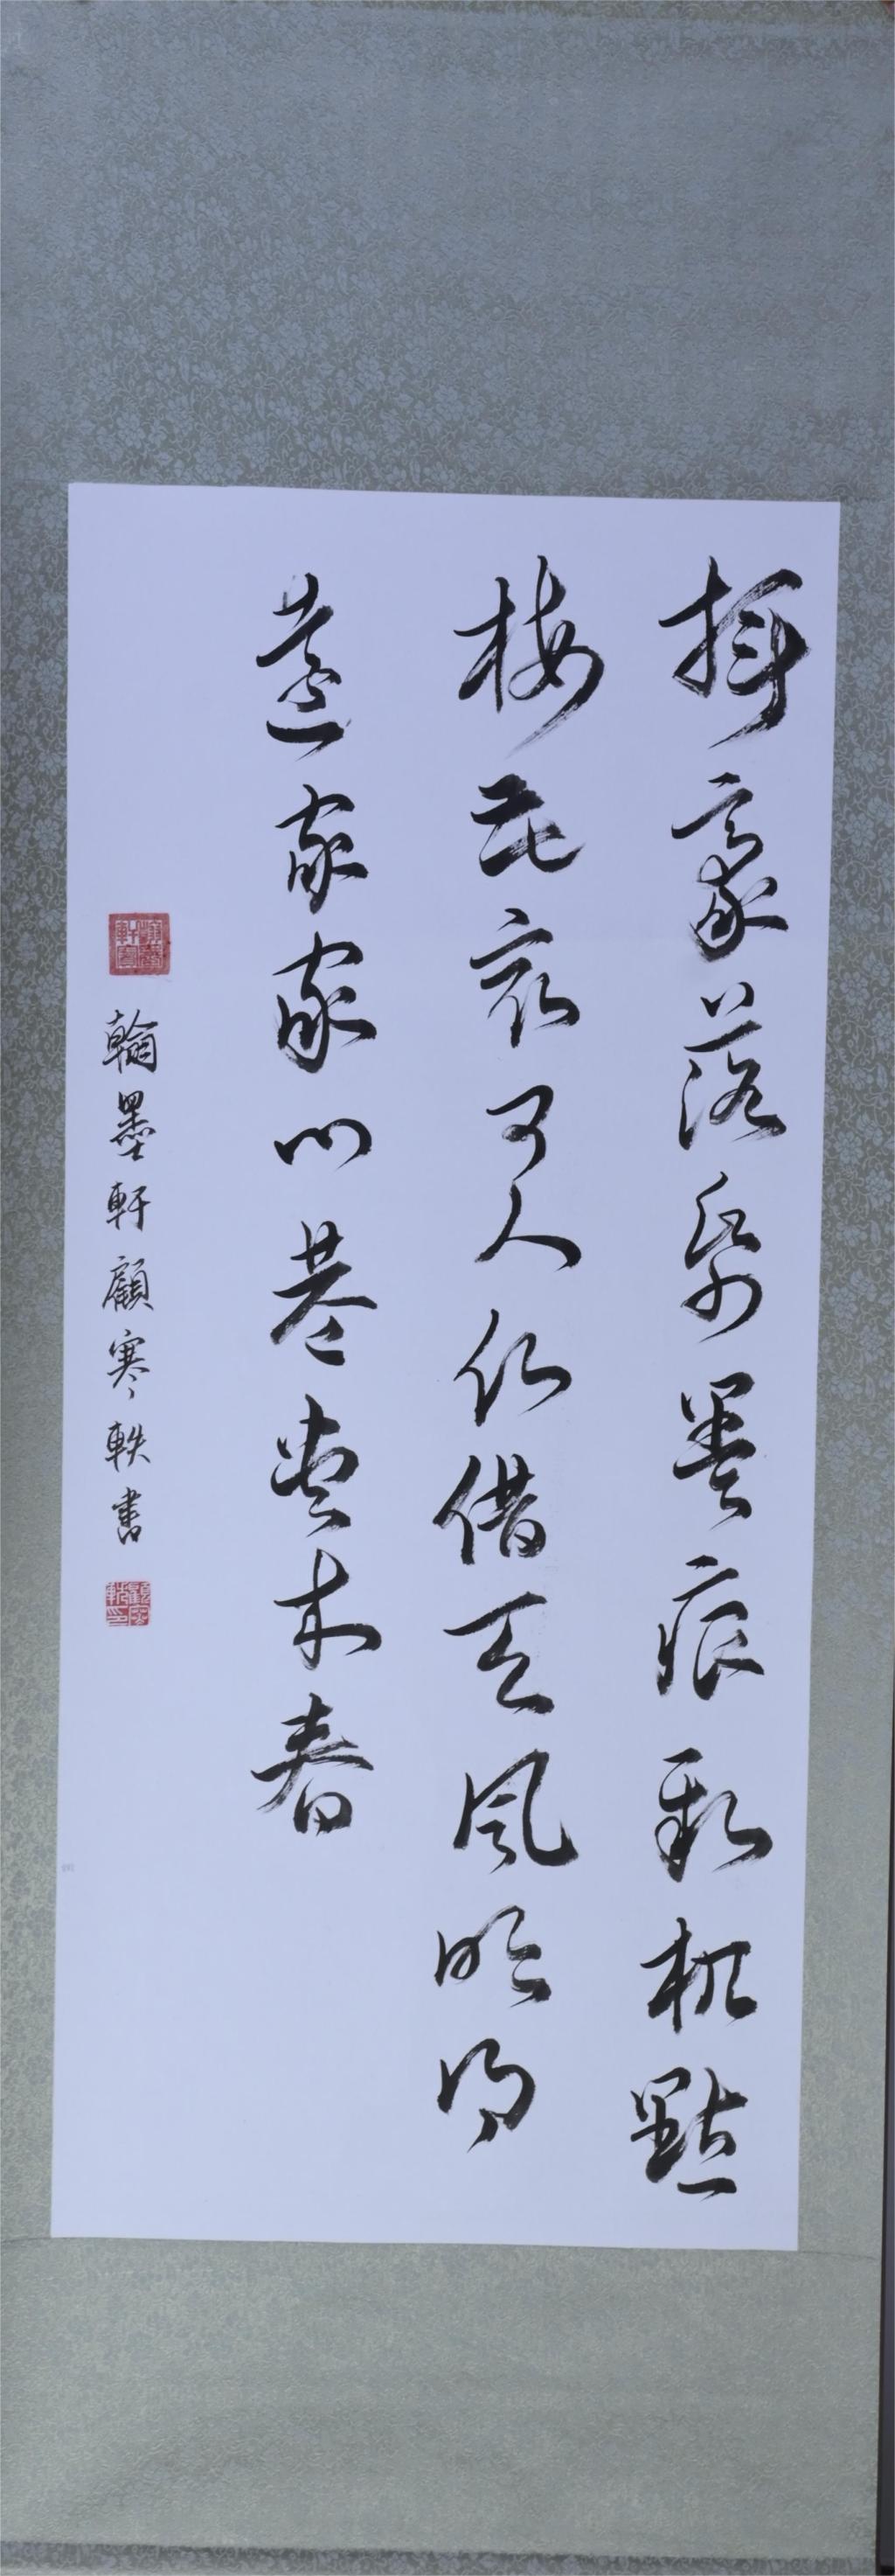 揮豪落紙墨痕新机點
梅花最可人願借天風吹得
遠家家門巷盡成春
翰墨軒顧寒軼書
顧寒軼印